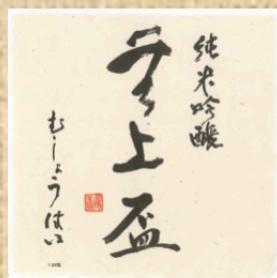 純米吟醸
無上盃
むじょうはい